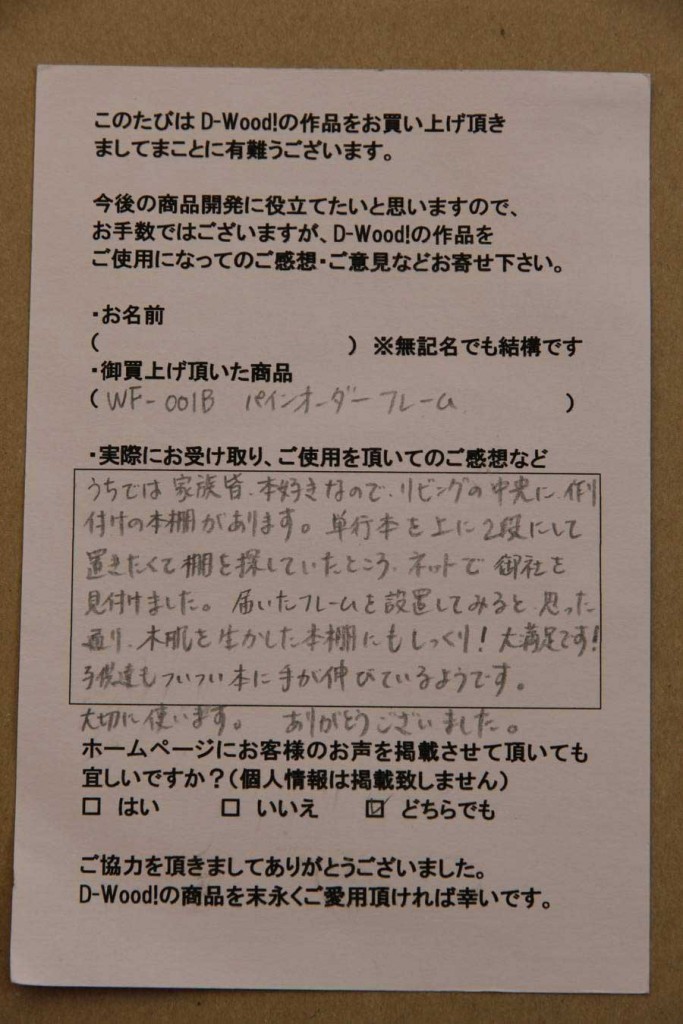 このたびは D-Wood!の作品をお買い上げ頂き
ましてまことに有難うございます。
今後の商品開発に役立てたいと思いますので、
お手数ではございますが、D-Wood!の作品を
ご使用になってのご感想・ご意見などお寄せ下さい。
・お名前
（　　　　　　　　　　　　）※無記名でも結構です
・御買上げ頂いた商品
（ WF-001B パインオーダーフレーム　　　）
・実際にお受け取り、ご使用を頂いてのご感想など
うちでは家族皆、本好きなので、リビングの中央に作り
付けの本棚があります。単行本を上に2段にして
置きたくて棚を探していたところ、ネットで御社を
見付けました。届いたフレームを設置してみると、思った
通り、木肌を生かした本棚にもしっくり！大満足です！
子供達もついつい本に手が伸びているようです。
大切に使います。ありがとうございました。
ホームページにお客様のお声を掲載させて頂いても
宜しいですか？（個人情報は掲載致しません）
□ はい　□ いいえ　☑ どちらでも
ご協力を頂きましてありがとうございました。
D-Wood!の商品を末永くご愛用頂ければ幸いです。